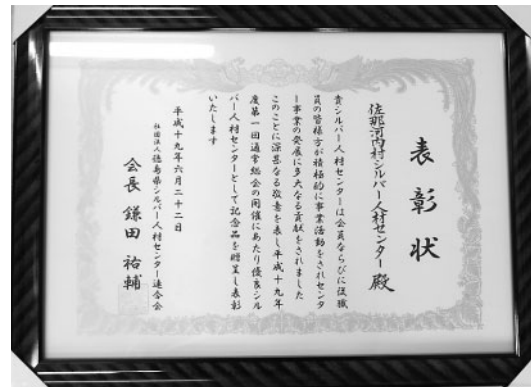 表彰状
佐那河内村シルバー人材センター 殿
貴シルバー人材センターは会員ならびに役職
員の皆様方が積極的に事業活動をされセンタ
ー事業の発展に多大なる貢献をされました
このことに深甚なる敬意を表し平成十九年
度第一回通常総会の開催にあたり優良シル
バー人材センターとして記念品を贈呈し表彰
いたします
平成十九年六月二十二日
社団法人徳島県シルバー人材センター連合会
会長 鎌田 祐輔